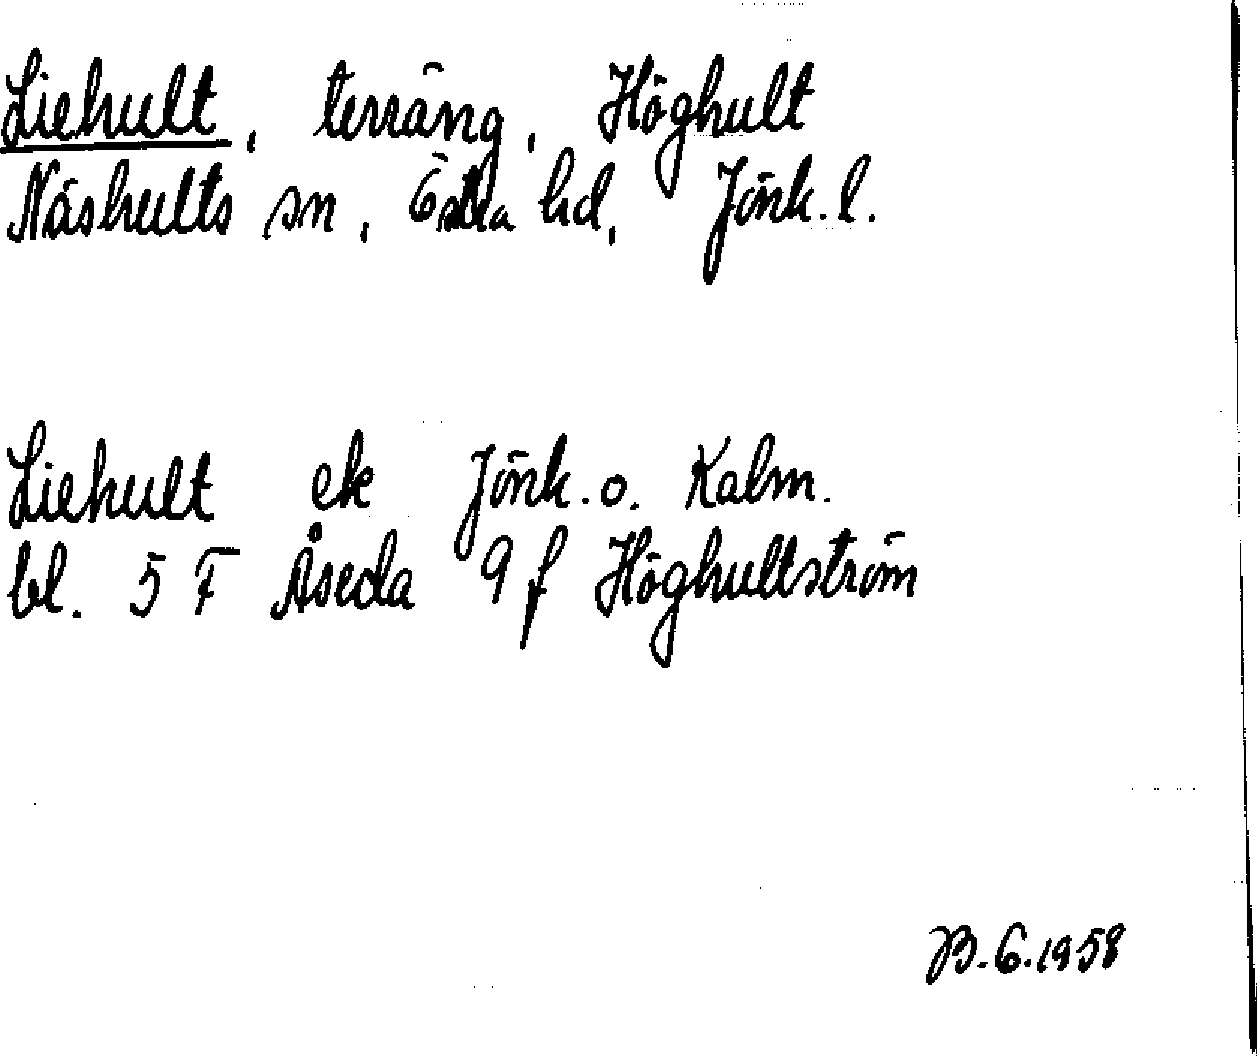 Liehult, terräng, Höghult
Näshults sn, Östra hd, Jönk. l.
Liehult ek Jönk. o. Kalm.
bl. 5 F Åseda 9 f Höghultström
B. 6. 1958